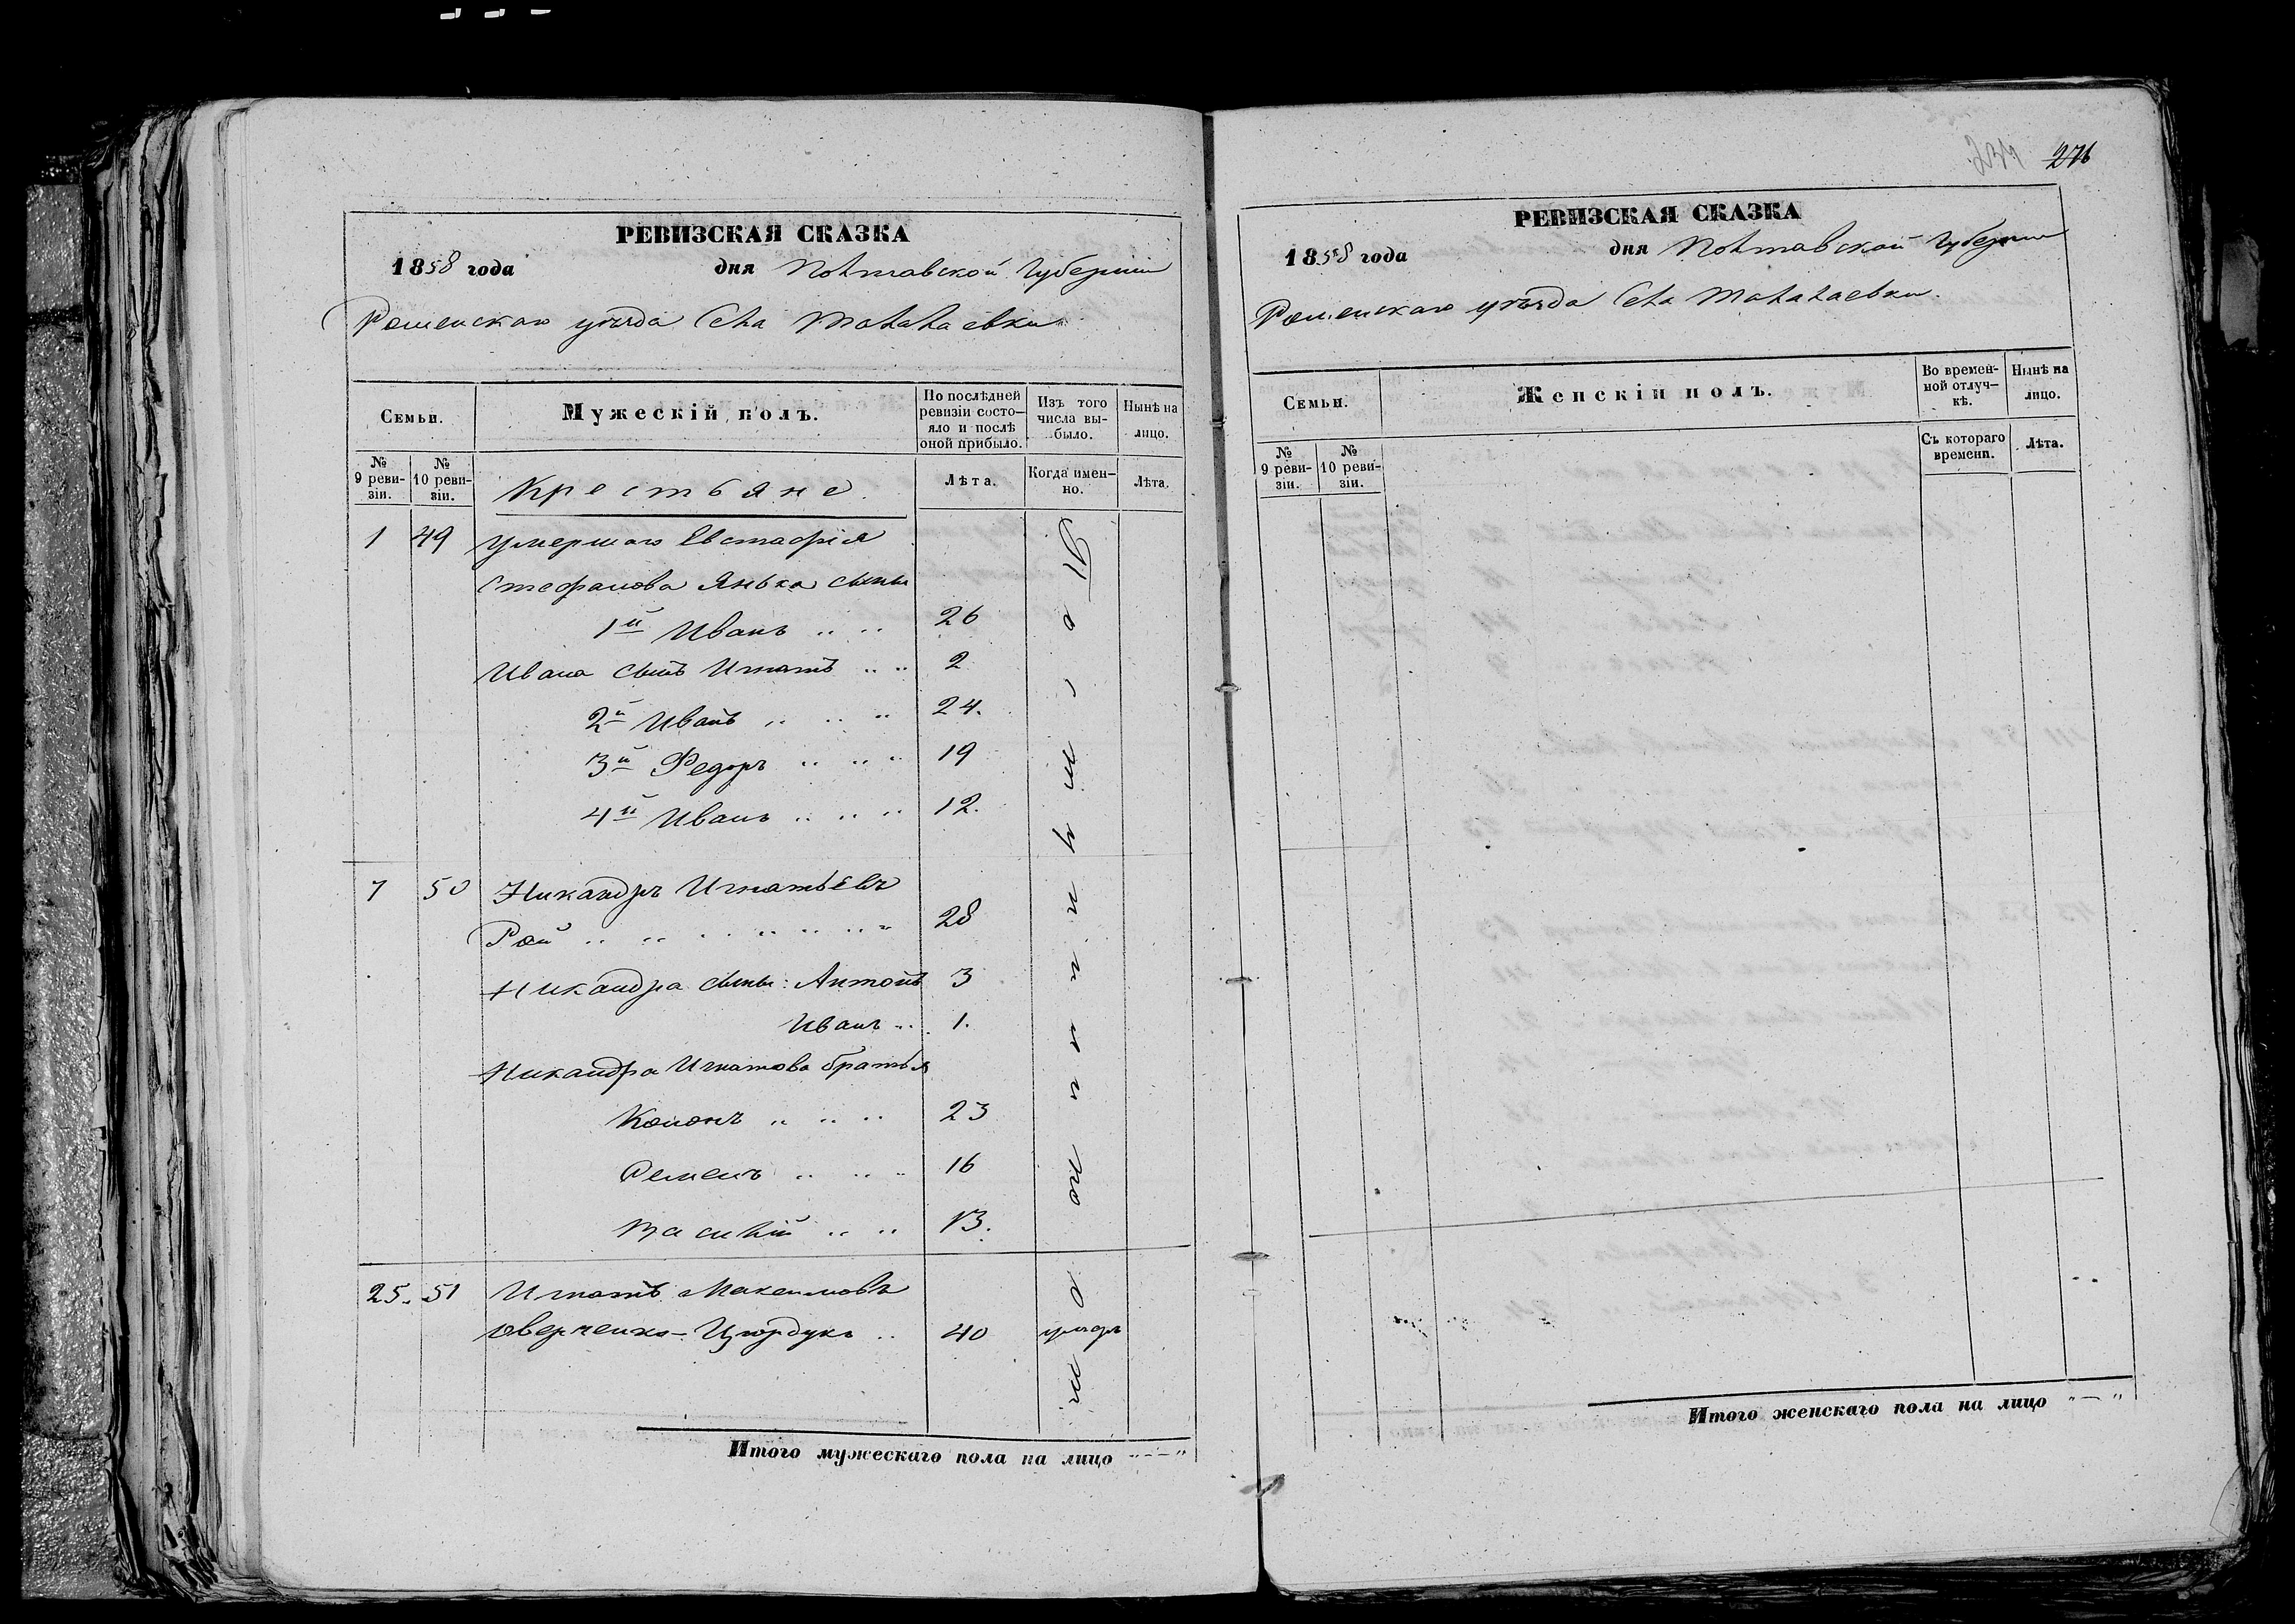 РЕВИЗСКАЯ СКАЗКА
1858 года дня Полтавской Губерніи
Роменскаго уѣзда Села Талалаевки
Семьи. Мужескій полъ. По послѣдней ревизіи состояло и послѣ оной прибыло. Изъ того числа выбыло. Нынѣ на лицо.
№ 9 ревизіи. № 10 ревизіи. Крестьяне. Лѣта. Когда именно. Лѣта.
1 49 Умершаго Евстафія
Стефанова Янька сыны
1й Иванъ 26
Ивана сынъ Игнатъ 2
2й Иванъ 24.
3й Федоръ 19
4й Иванъ 12.
7 50 Никандръ Игнатьевъ
Рой 28
Никандра сыны: Антонъ 3
Иванъ 1.
Никандра Игнатова братья
Кононъ 23
Семенъ 16
Василій 13.
25. 51 Игнатъ Максимовъ
40
Итого мужескаго пола на лицо "---"
276
РЕВИЗСКАЯ СКАЗКА
1858 года дня Полтавской Губерніи
Роменскаго уѣзда Села Талалаевки.
Семьи. Женскій полъ. Во временной отлучкѣ. Нынѣ на лицо.
№ 9 ревизіи. № 10 ревизіи. Съ котораго времени. Лѣта.
Итого женскаго пола на лицо "—"